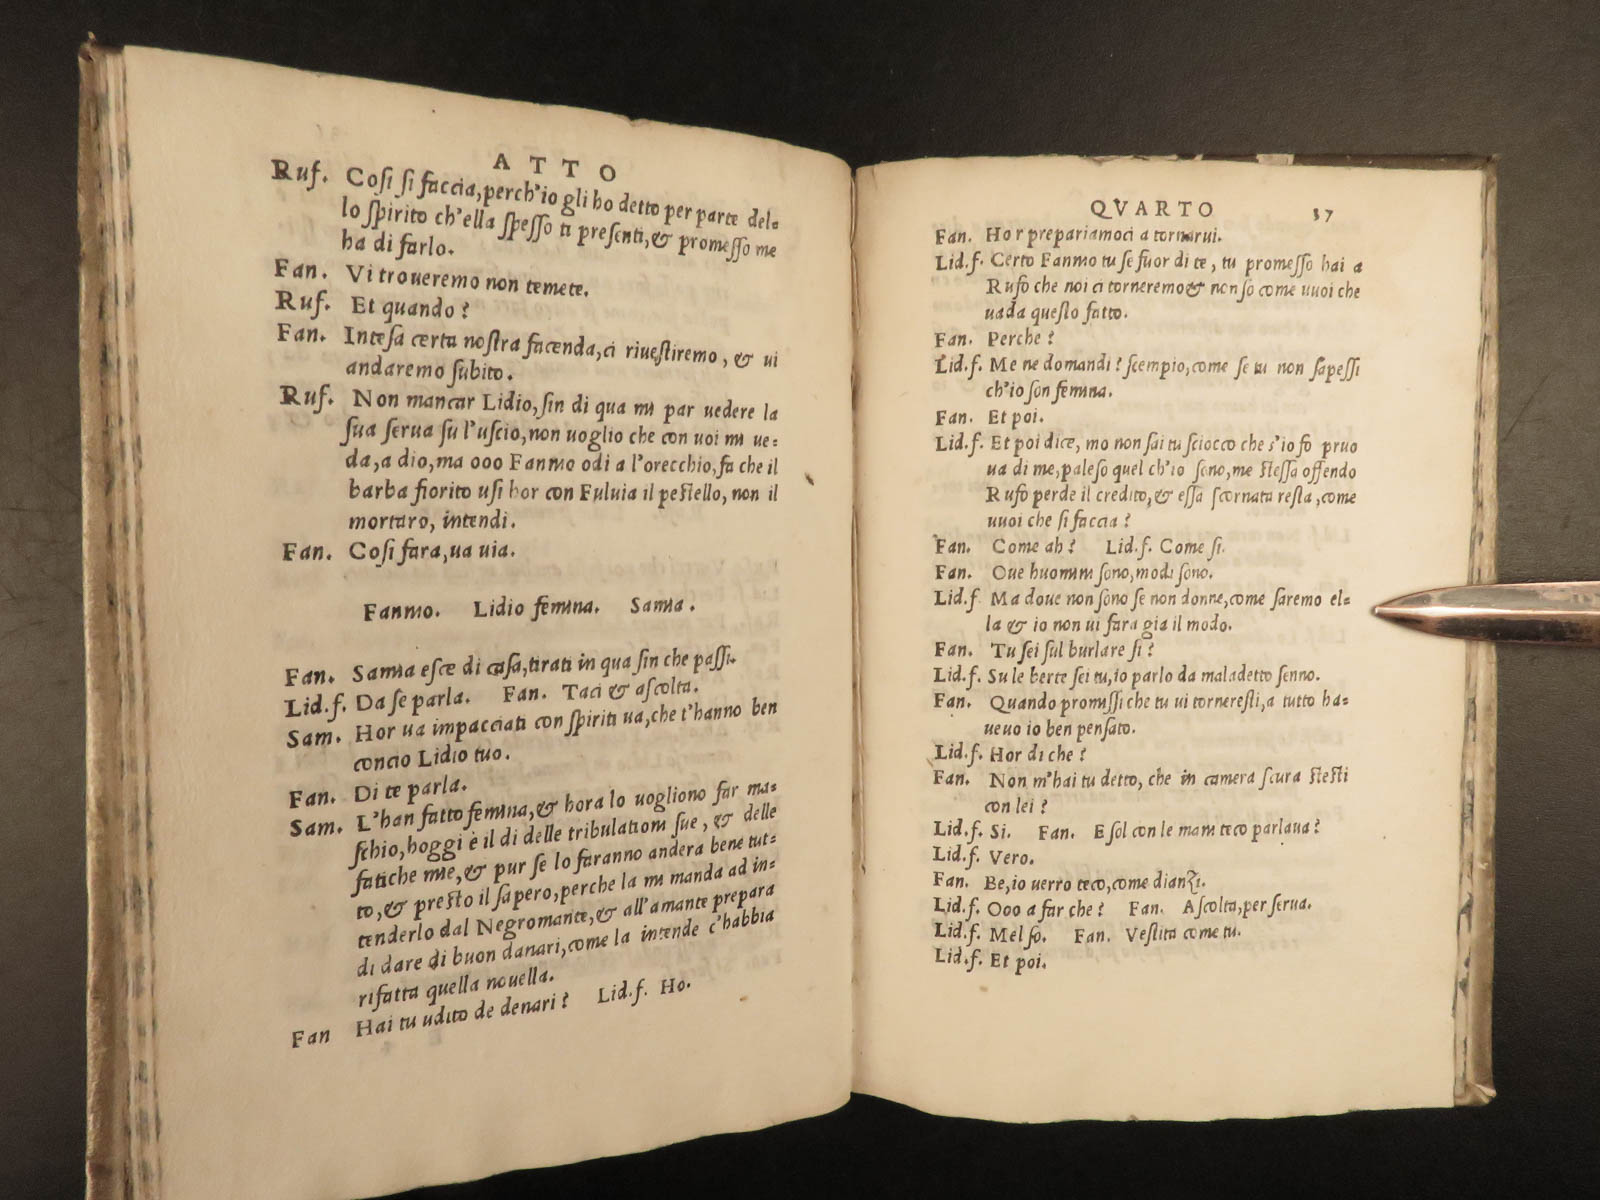 ATTO
Ruf. Cosi si faccia, perch'io gli ho detto per parte del=
lo spirito ch'ella spesso ti presenti, & promesso me
ha di farlo.
Fan. Vi troueremo non temete.
Ruf. Et quando?
Fan. Intesa certa nostra facenda, ci riuestiremo, & ui
andaremo subito.
Ruf. Non mancar Lidio, sin di qua mi par uedere la
sua serua su l'uscio, non uoglio che con uoi mi ue=
da, a dio, ma ooo Fannio odi a l'orecchio, fa che il
barba fiorito usi hor con Fuluia il pestello, non il
mortaro, intendi.
Fan. Cosi fara, ua uia.
Fannio. Lidio femina. Samia.
Fan. Samia esce di casa, tirati in qua sin che passi.
Lid.f. Da se parla. Fan. Taci & ascolta.
Sam. Hor ua impacciati con spiriti ua, che t'hanno ben
concio Lidio tuo.
Fan. Di te parla.
Sam. L'han fatto femina, & hora lo uogliono far ma=
schio, hoggi è il di delle tribulationi sue, & delle
fatiche mie, & pur se lo faranno andera bene tut=
to, & presto il sapero, perche la mi manda ad in=
tenderlo dal Negromante, & all'amante prepara
di dare di buon danari, come la intende c'habbia
rifatta quella nouella.
Fan Hai tu udito de denari? Lid.f. Ho.
QVARTO 37
Fan. Hor prepariamoci a tornarui.
Lid.f. Certo Fannio tu se fuor di te, tu promesso hai a
Rufo che noi ci torneremo & non so come uuoi che
uada questo fatto.
Fan. Perche?
Lid.f. Me ne domandi? scempio, come se tu non sapessi
ch'io son femina.
Fan. Et poi.
Lid.f. Et poi dice, mo non sai tu sciocco che s'io fo pruo
ua di me, paleso quel ch'io sono, me stessa offendo
Rufo perde il credito, & essa scornata resta, come
uuoi che si faccia?
Fan. Come ah? Lid.f. Come si.
Fan. Oue huomini sono, modi sono.
Lid.f. Ma doue non sono se non donne, come saremo el=
la & io non ui fara gia il modo.
Fan. Tu sei sul burlare si?
Lid.f. Su le berte sei tu, io parlo da maladetto senno.
Fan. Quando promissi che tu ui torneresti, a tutto ha=
ueuo io ben pensato.
Lid.f. Hor di che?
Fan. Non m'hai tu detto, che in camera scura stesti
con lei?
Lid.f. Si. Fan. E sol con le mani teco parlaua?
Lid.f. Vero.
Fan. Be, io uerro teco, come dianzi.
Lid.f. Ooo a far che? Fan. Ascolta, per serua.
Lid.f. Mel so. Fan. Vestita come tu.
Lid.f. Et poi.